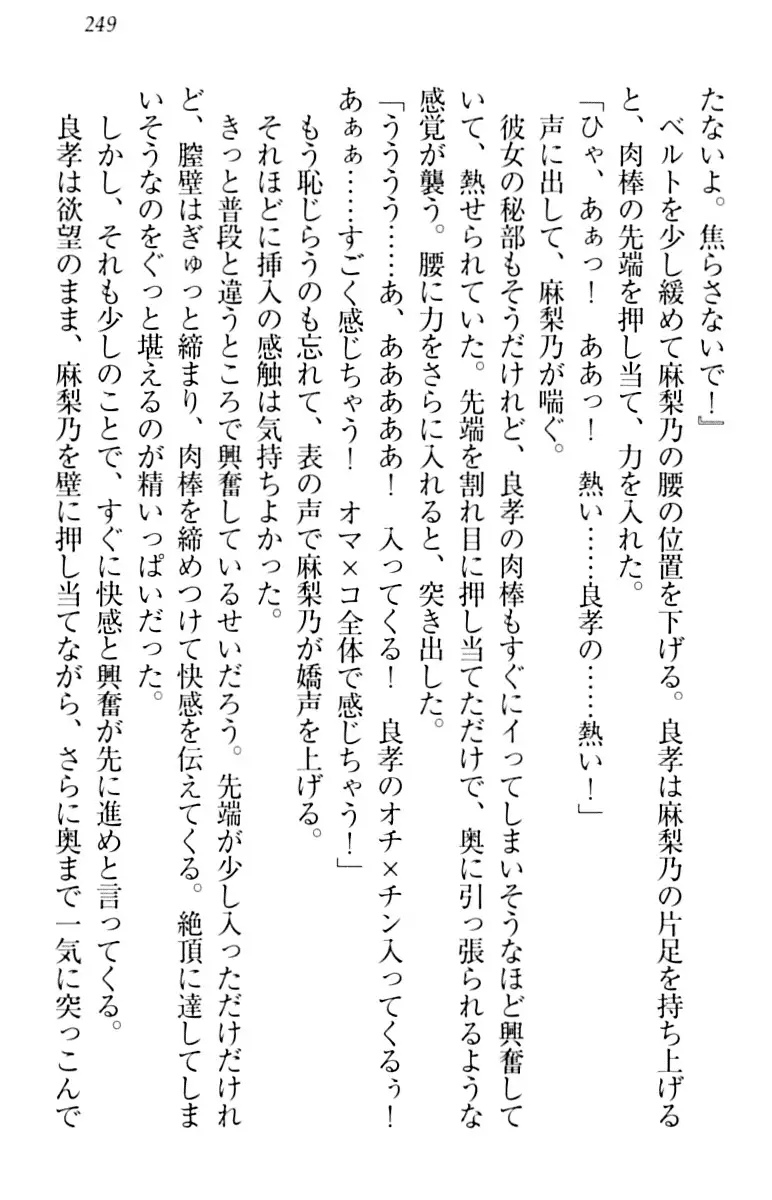 249
たないよ。焦らさないで！』
ベルトを少し緩めて麻梨乃の腰の位置を下げる。良孝は麻梨乃の片足を持ち上げる
と、肉棒の先端を押し当て、力を入れた。
「ひゃ、あぁっ！　ああっ！　熱い……良孝の……熱い！」
声に出して、麻梨乃が喘ぐ。
彼女の秘部もそうだけれど、良孝の肉棒もすぐにイってしまいそうなほど興奮して
いて、熱せられていた。先端を割れ目に押し当てただけで、奥に引っ張られるような
感覚が襲う。腰に力をさらに入れると、突き出した。
「うううう……あ、ああああああ！　入ってくる！　良孝のオチ×チン入ってくるぅ！
あぁぁ……すごく感じちゃう！　オマ×コ全体で感じちゃう！」
もう恥じらうのも忘れて、表の声で麻梨乃が嬌声を上げる。
それほどに挿入の感触は気持ちよかった。
きっと普段と違うところで興奮しているせいだろう。先端が少し入っただけだけれ
ど、膣壁はぎゅっと締まり、肉棒を締めつけて快感を伝えてくる。絶頂に達してしま
いそうなのをぐっと堪えるのが精いっぱいだった。
しかし、それも少しのことで、すぐに快感と興奮が先に進めと言ってくる。
良孝は欲望のまま、麻梨乃を壁に押し当てながら、さらに奥まで一気に突っこんで